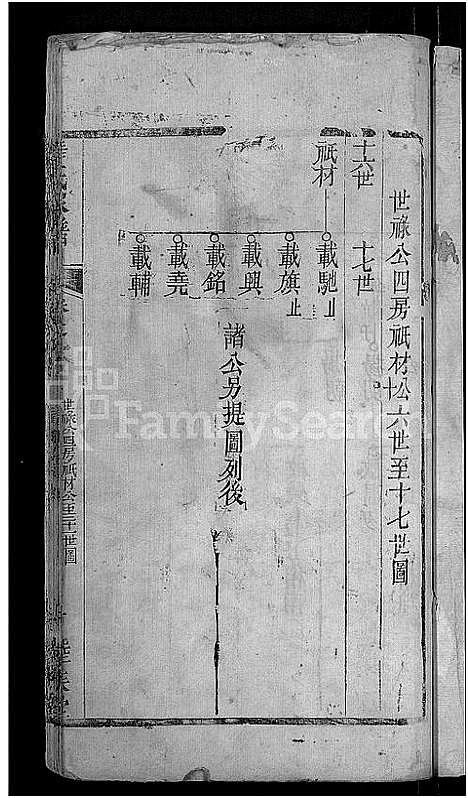 世祿公四房祇材公十六世至十七世圖
十六世
十七世
祇材
載馳止
載旗止
載興
載銘
載堯
載輔
諸公另提圖列後
世祿公四房祇材公至十二世圖
FamilySearch